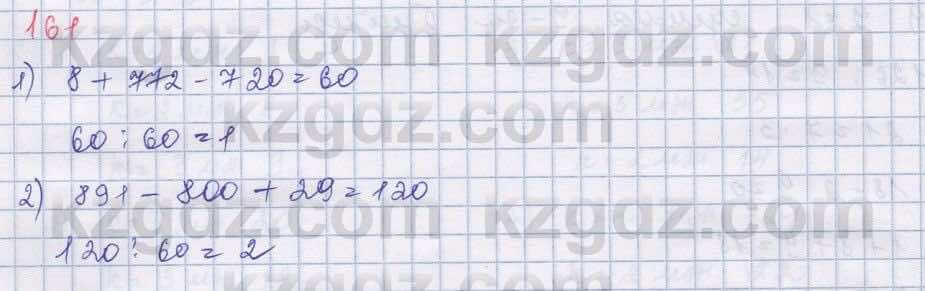 161
1) 8 + 772 - 720 = 60
60 : 60 = 1
2) 891 - 800 + 29 = 120
120 : 60 = 2
kzgdz.com kzgdz.com
kzgdz.com
kzgdz.com kzgdz.com